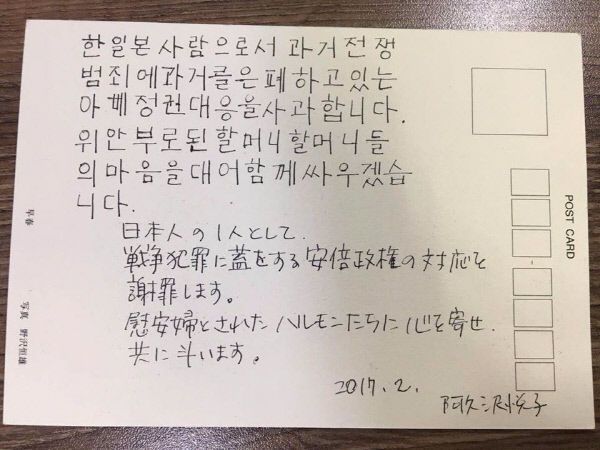 한일본사람으로서과거전쟁
범죄에과거를은폐하고있는
아베정권대응을사과합니다.
위안부로된할머니할머니들
의마음을대어함께싸우겠습
니다.
日本人の1人として.
戦争犯罪に蓋をする安倍政権の対応を
謝罪します。
慰安婦とされたハルモンたちに心を寄せ.
共に斗います。
2017.2.
POST CARD
早春
写真 野沢恒雄